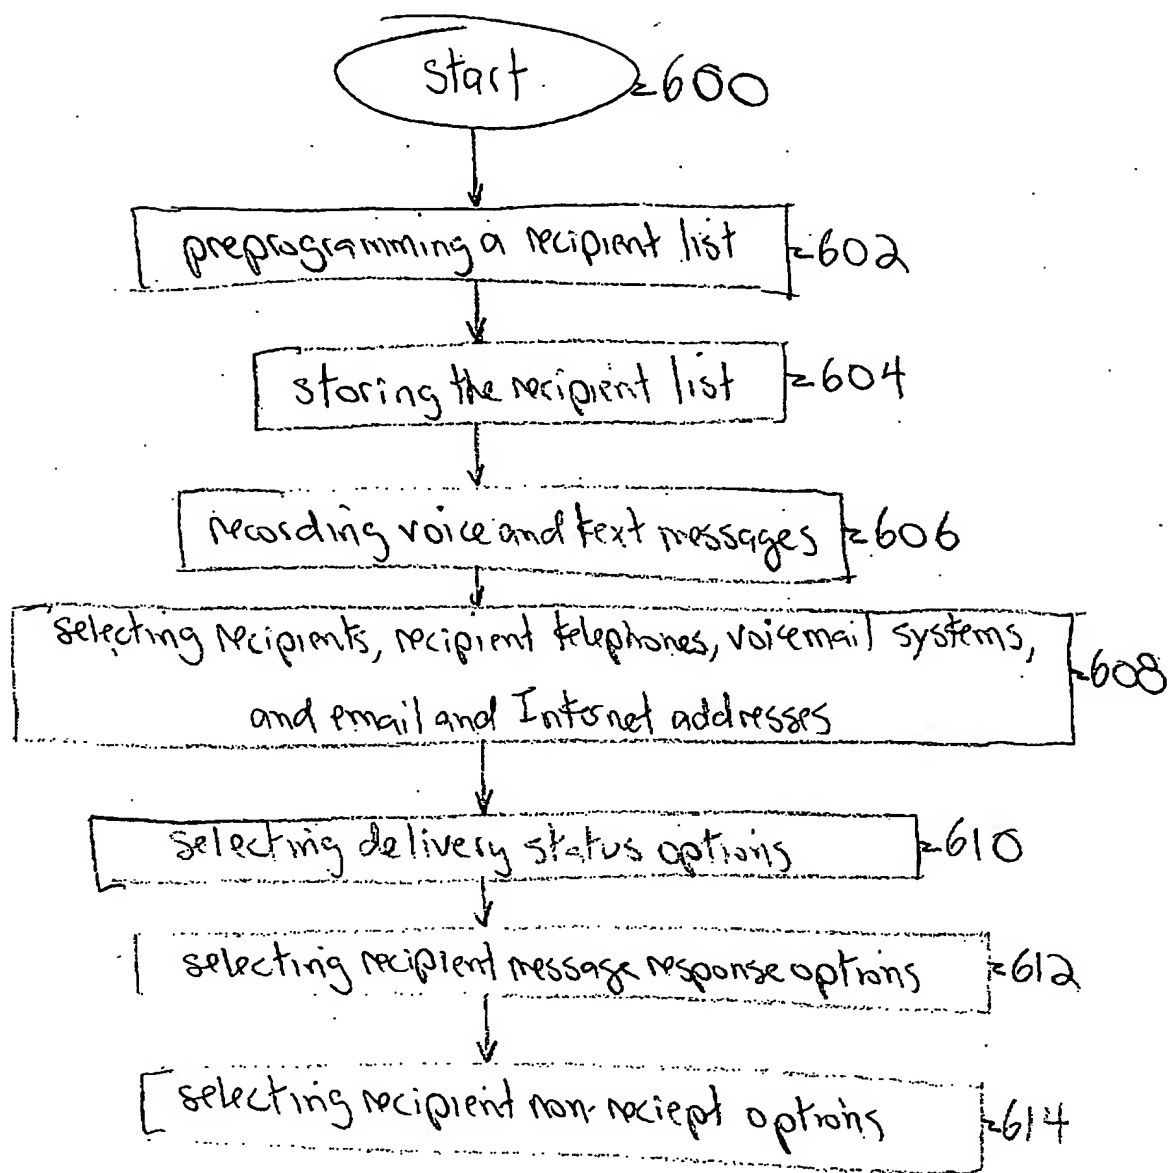 start 600
preprogramming a recipient list 602
storing the recipient list 604
recording voice and text messages 606
selecting recipients, recipient telephones, voicemail systems,
and email and Internet addresses
608
selecting delivery status options 610
selecting recipient message response options 612
selecting recipient non-reciept options 614